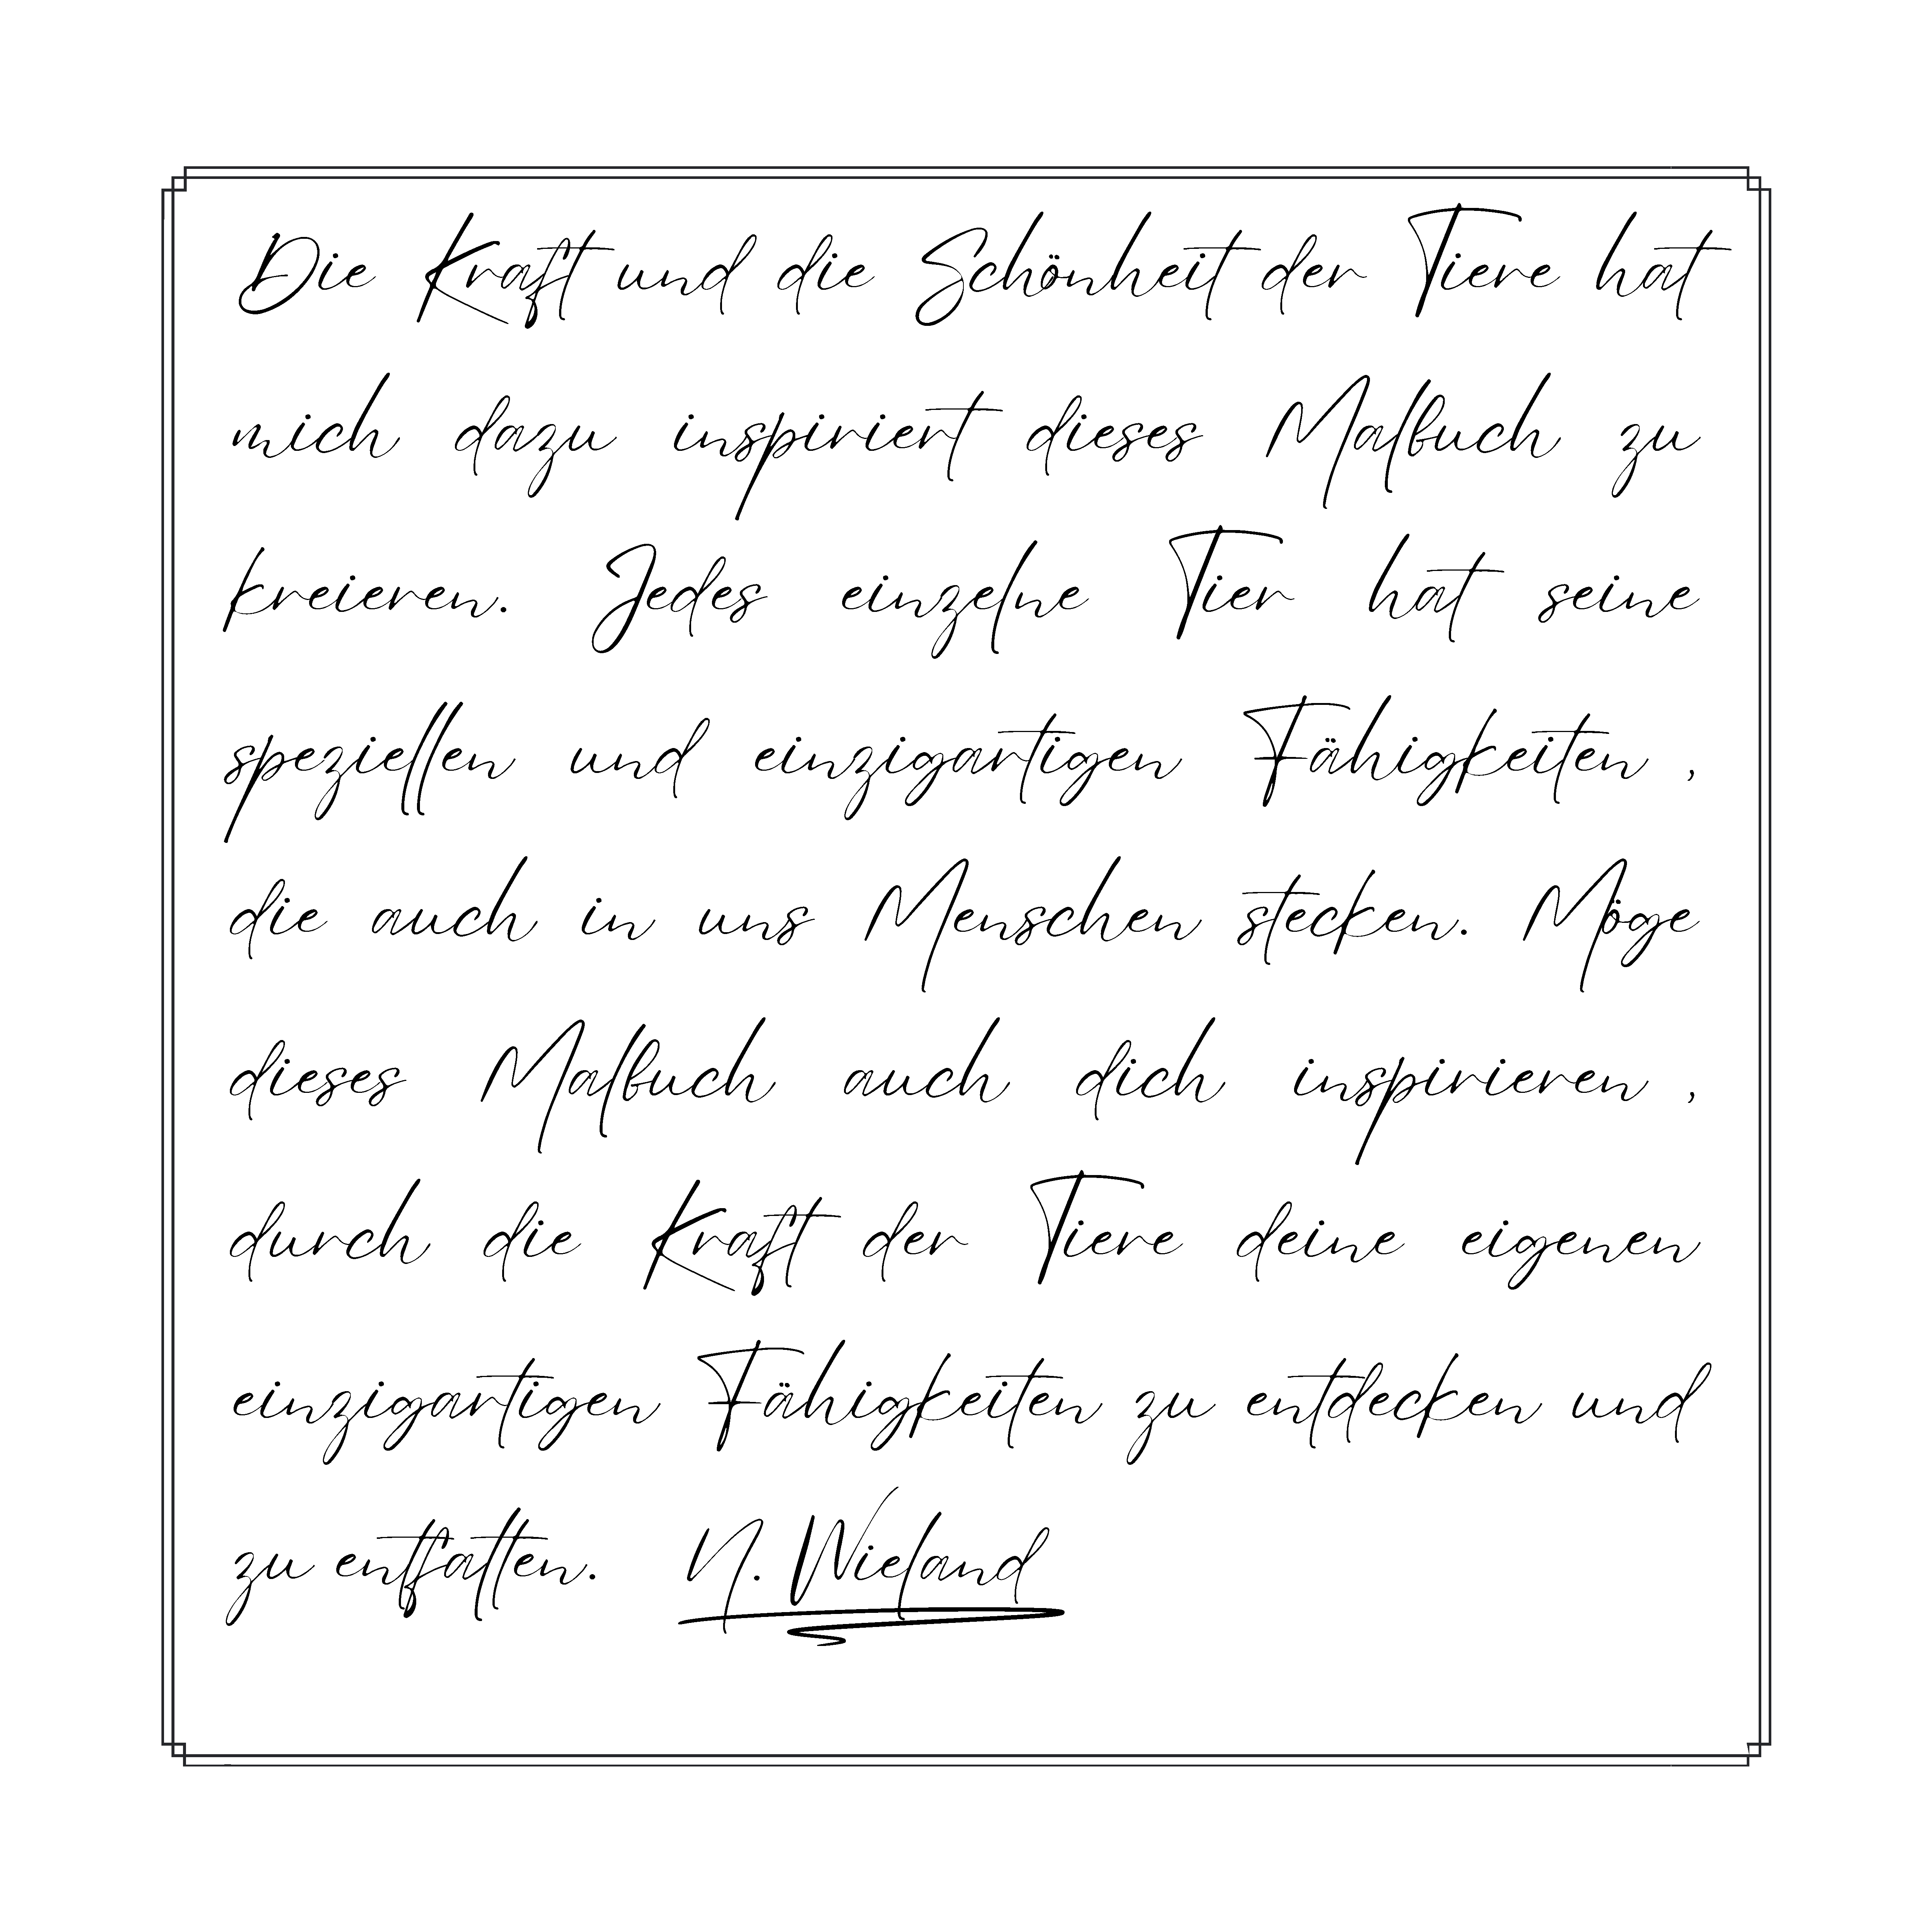 Die Kraft und die Schönheit der Tiere hat
mich dazu inspiriert dieses Malbuch zu
kreieren. Jedes einzelne Tier hat seine
speziellen und einzigartigen Fähigkeiten ,
die auch in uns Menschen stecken. Möge
dieses Malbuch auch dich inspirieren ,
durch die Kraft der Tiere deine eigenen
einzigartigen Fähigkeiten zu entdecken und
zu entfalten. N. Wieland